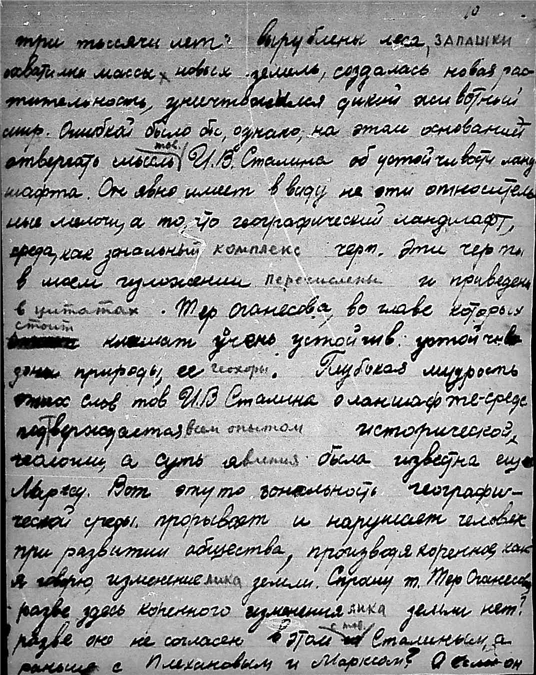 10
три тысячи лет: вырублены леса, ЗАПАШКИ
охватили массы новых земель, создалась новая рас-
тительность, уничтожился дикий животный
мир. Ошибкой было бы, однако, на этом основании
отвергать мысль тов. И.В. Сталина об устойчивости ланд-
шафта. Он явно имеет в виду не эти относитель-
ные мелочи, а то, что географический ландшафт,
среда, как зональный комплекс черт. Эти черты
в моем изложении перечислены и приведены
в цитатах. Тер Оганесова, во главе которых
стоит климат очень устойчив: устойчивы
зоны природы, ее геохоры. Глубокая мудрость
этих слов тов И.В Сталина о ланшафте-среде
подтверждается всем опытом исторической
геологии, а суть явления была известна еще
Марксу. Вот эту то зональность географи-
ческой среды прорывает и нарушает человек
при развитии общества, производя коренное, как
я говорю, изменение лика земли. Спрошу т. Тер Оганесова
- разве здесь коренного изменения лика земли нет?
разве оно не согласен в этом с тов. Сталиным, а
раньше с Плехановым и Марксом? А если он